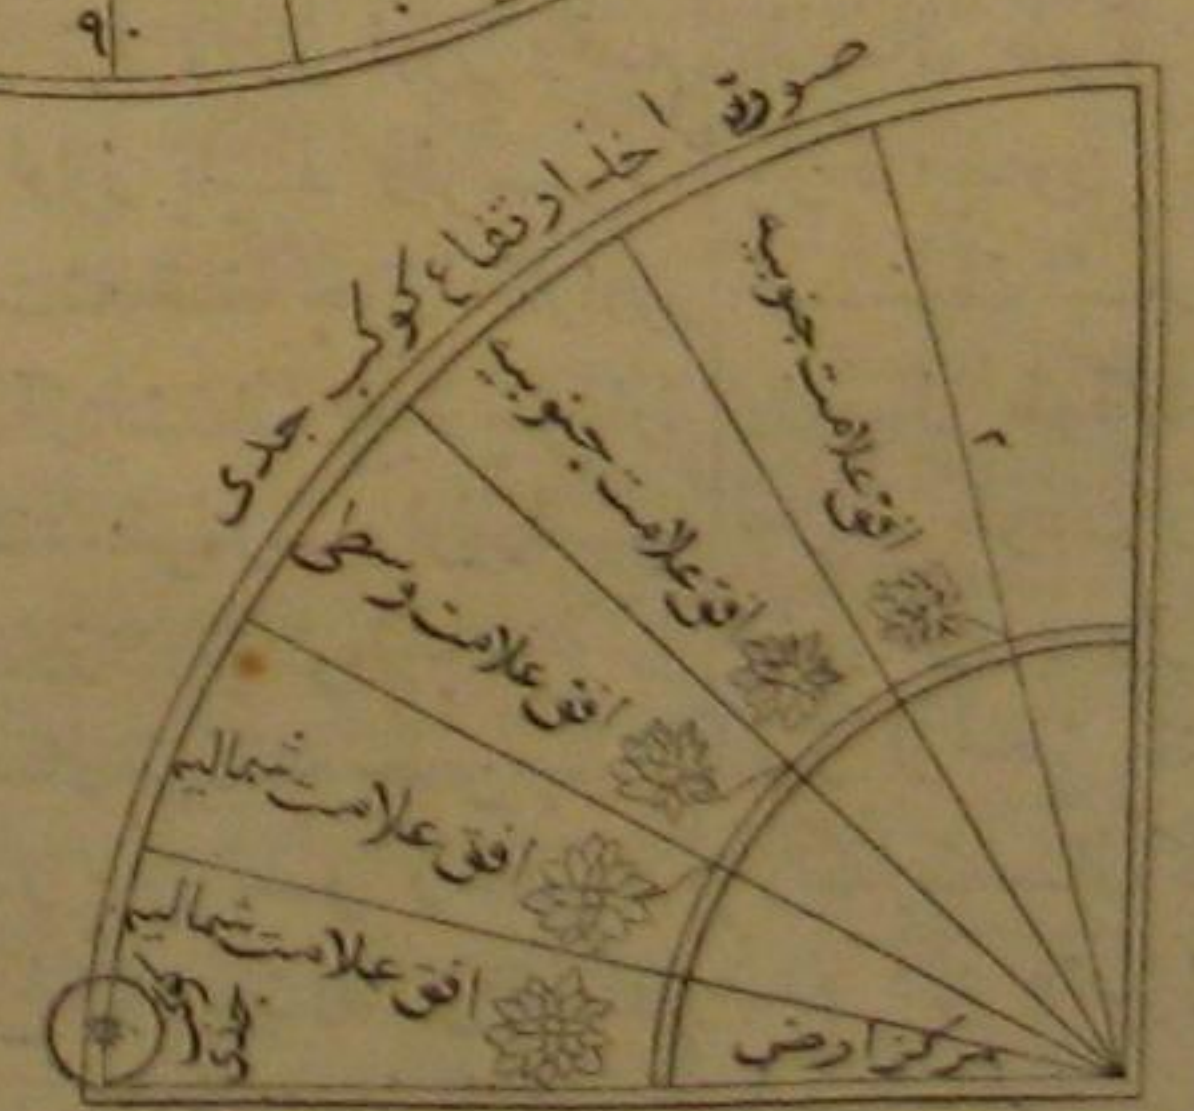 ٩٠
صورة اخذ ارتفاع كوكب جدى
افق علامت جنوبيه
افق علامت جنوبيه
افق علامت وسطى
افق علامت شماليه
افق علامت شماليه
مركز ارض